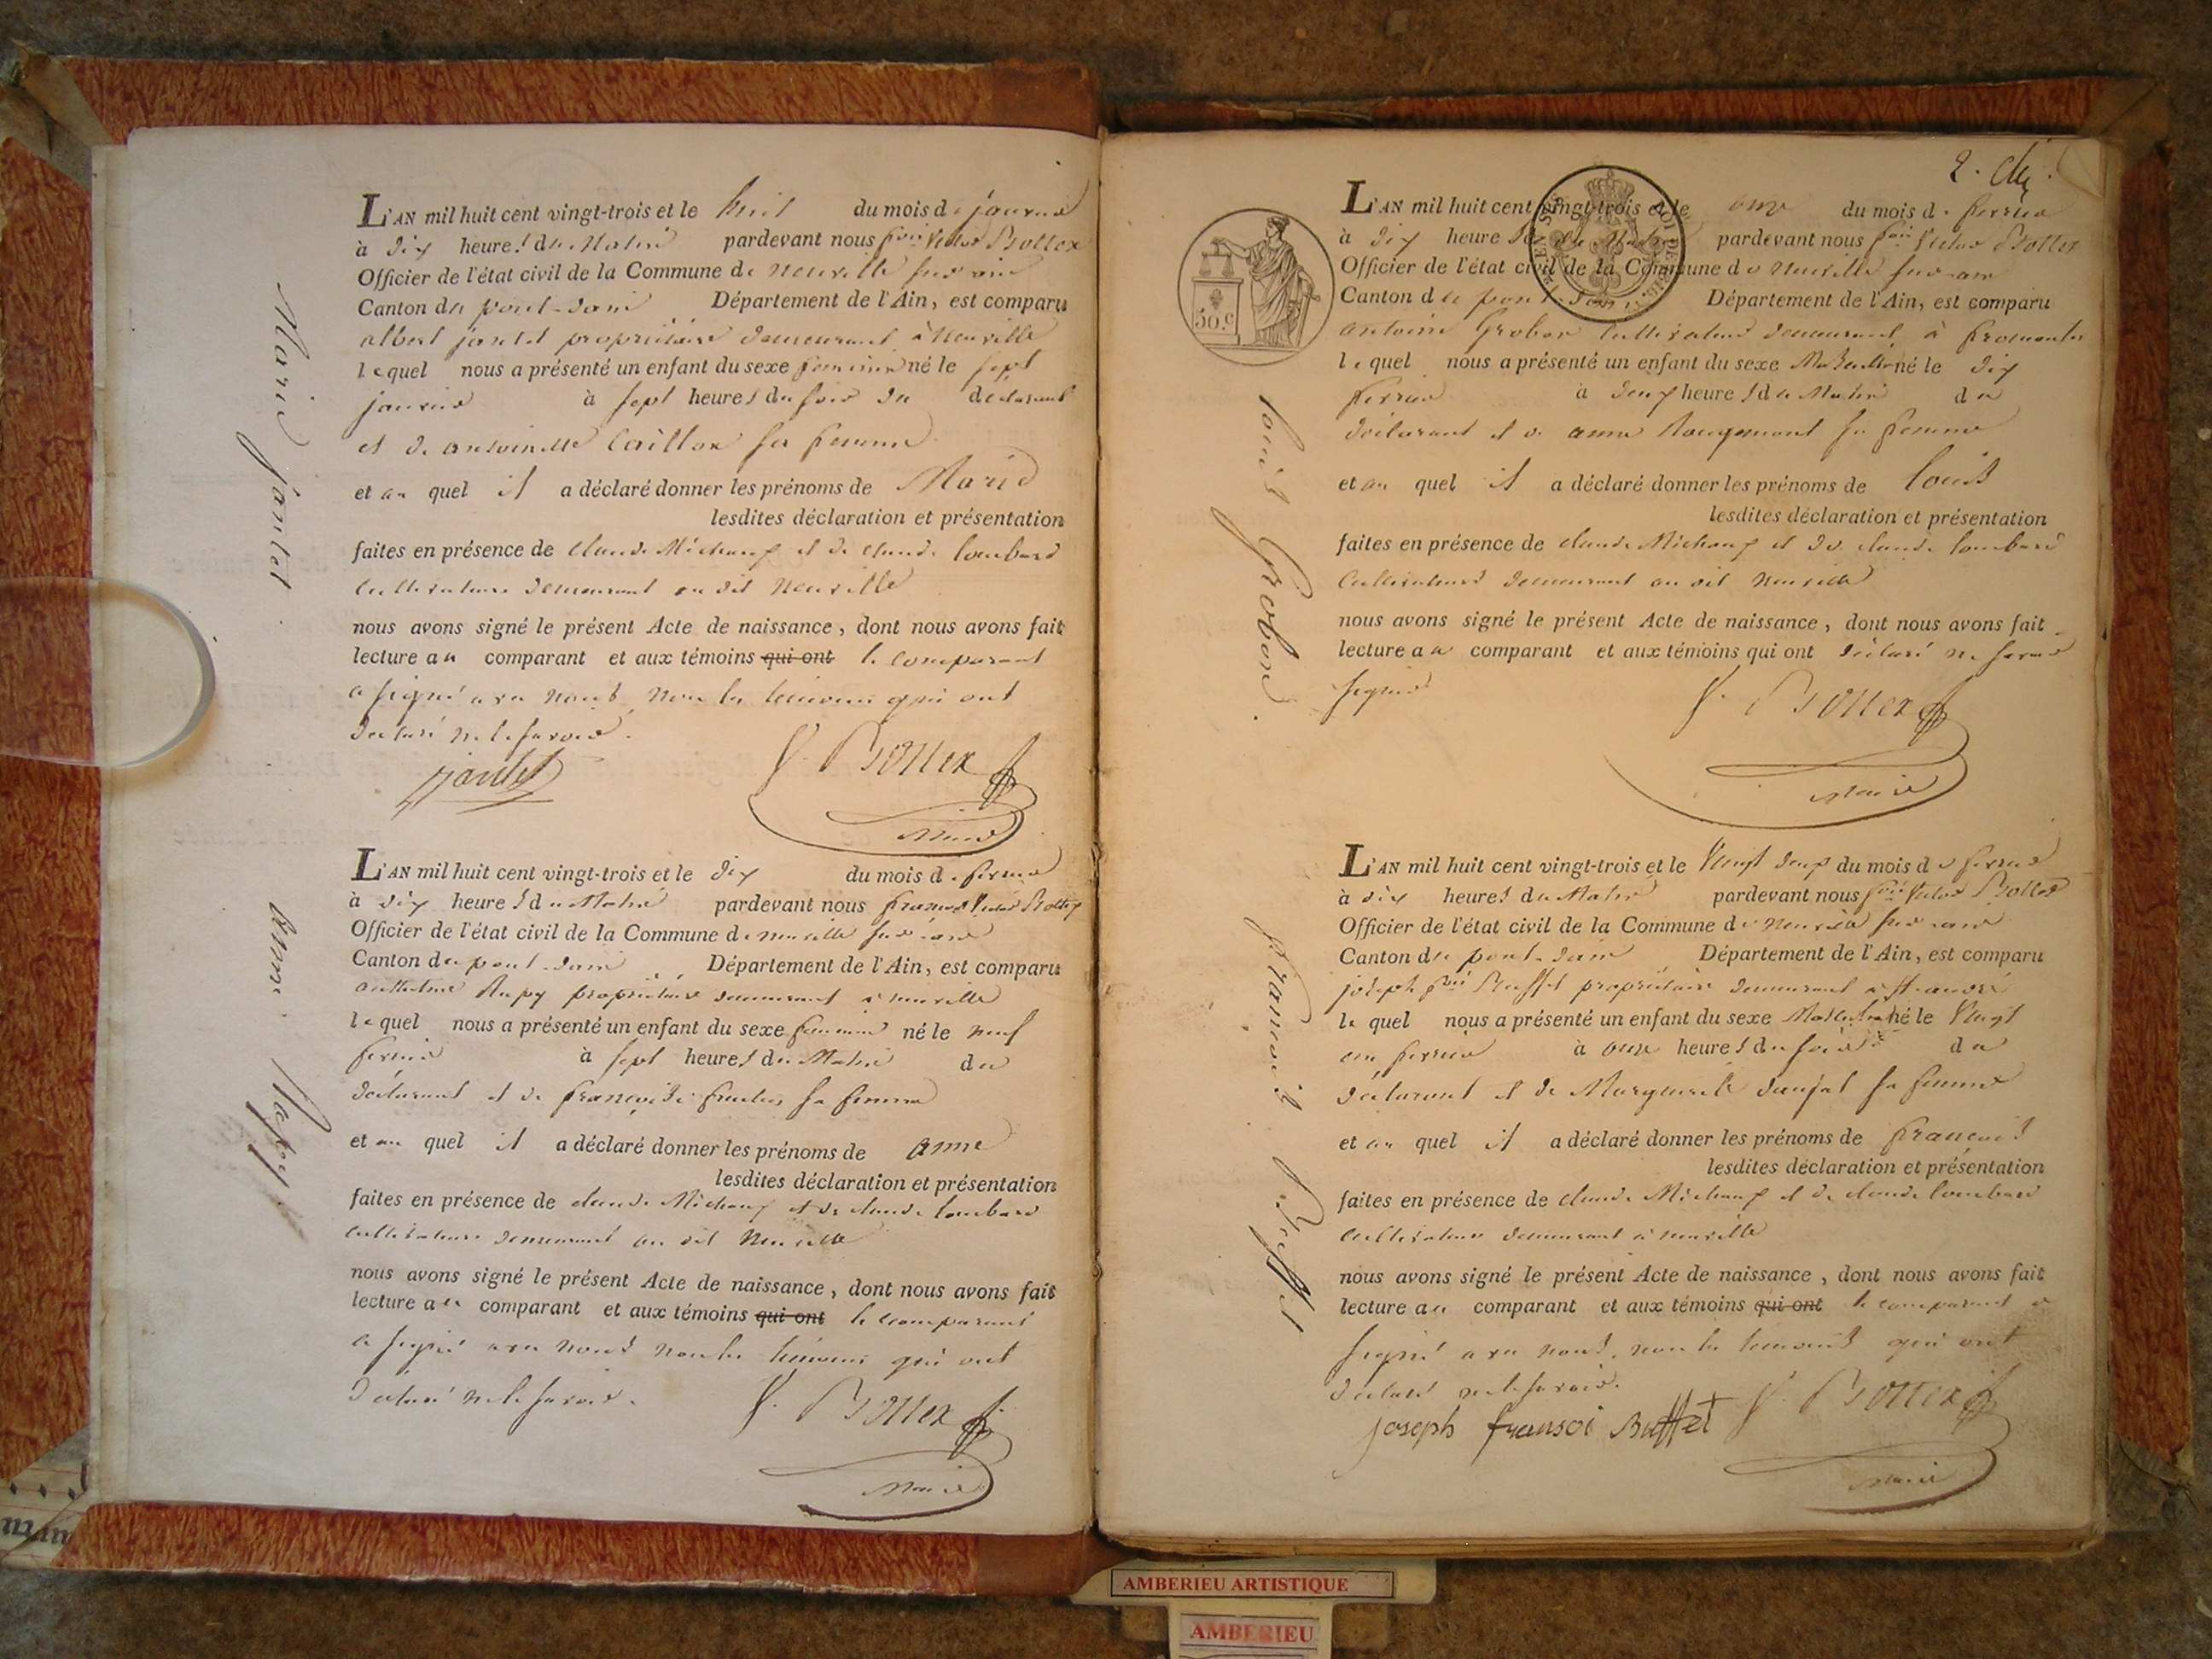 Marie jantet
L'AN mil huit cent vingt-trois et le huit du mois de janvier
à dix heures du Matin pardevant nous fois Victor Bottex
Officier de l'état civil de la Commune de neuville sur ain
Canton du pont-dain Département de l'Ain, est comparu
albert jantet propriétaire demeurant à Neuville
lequel nous a présenté un enfant du sexe feminin né le sept
janvier à sept heures du soir du déclarant
et de antoinette Caillon sa femme
et au quel il a déclaré donner les prénoms de Marie
lesdites déclaration et présentation
faites en présence de claude Michaux et de claude lombard
cultivateurs demeurant au dit Neuville
nous avons signé le présent Acte de naissance, dont nous avons fait
lecture au comparant et aux témoins qui ont le comparant
a signé avec nous non les temoins qui ont
declaré ne le savoir.
jantet V. Bottex
Maire
anne Rapy
L'AN mil huit cent vingt-trois et le dix du mois de fevrier
à dix heures du Matin pardevant nous francois Victor Bottex
Officier de l'état civil de la Commune de neuville sur ain
Canton du pont-dain Département de l'Ain, est comparu
anthelme Rapy propriétaire demeurant à neuville
lequel nous a présenté un enfant du sexe feminin né le neuf
fevrier à sept heures du Matin du
déclarant et de françoise sa femme
et au quel il a déclaré donner les prénoms de anne
lesdites déclaration et présentation
faites en présence de claude Michaux et de claude lombard
cultivateurs demeurant au dit Neuville
nous avons signé le présent Acte de naissance, dont nous avons fait
lecture au comparant et aux témoins qui ont le comparant
a signé avec nous non les temoins qui ont
declaré ne le savoir.
V. Bottex
Maire
2.
50.c
louis Grobon.
L'AN mil huit cent vingt-trois et le onze du mois de fevrier
à dix heures du Matin pardevant nous fois Victor Bottex
Officier de l'état civil de la Commune de Neuville sur ain
Canton du pont-dain Département de l'Ain, est comparu
antoine Grobon cultivateur demeurant à fromentes
lequel nous a présenté un enfant du sexe Masculin né le dix
fevrier à deux heures du Matin du
déclarant et de anne Rougemont sa femme
et au quel il a déclaré donner les prénoms de louis
lesdites déclaration et présentation
faites en présence de claude Michaux et de claude lombard
cultivateurs demeurant au dit neuville
nous avons signé le présent Acte de naissance, dont nous avons fait
lecture au comparant et aux témoins qui ont déclaré ne savoir
signer
V. Bottex
Maire
francois Buffet
L'AN mil huit cent vingt-trois et le Vingt deux du mois de fevrier
à dix heures du Matin pardevant nous fois Victor Bottex
Officier de l'état civil de la Commune de Neuville sur ain
Canton du pont-dain Département de l'Ain, est comparu
joseph fois Buffet propriétaire demeurant à st andré
lequel nous a présenté un enfant du sexe Masculin né le Vingt
un fevrier à onze heures du soir du
déclarant et de Marguerite danjat sa femme
et au quel il a déclaré donner les prénoms de francois
lesdites déclaration et présentation
faites en présence de claude Michaux et de claude lombard
cultivateurs demeurant à neuville
nous avons signé le présent Acte de naissance, dont nous avons fait
lecture au comparant et aux témoins qui ont le comparant a
signé avec nous, non les temoins qui ont
declaré ne le savoir.
joseph fransoi Buffet V. Bottex
Maire
AMBERIEU ARTISTIQUE
AMBERIEU